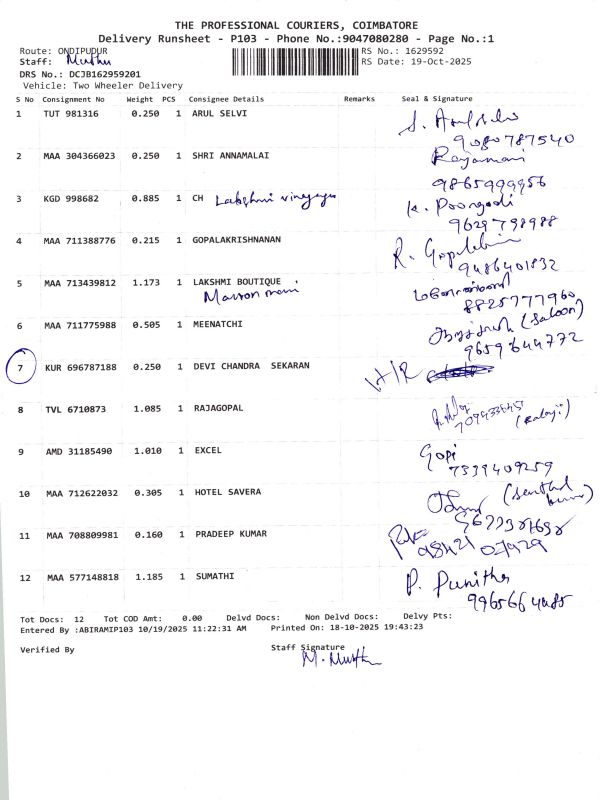 THE PROFESSIONAL COURIERS, COIMBATORE
Delivery Runsheet - P103 - Phone No.:9047080280 - Page No.:1
Route: ONDIPUDUR RS No.: 1629592
Staff: Muthu RS Date: 19-Oct-2025
DRS No.: DCJB162959201
Vehicle: Two Wheeler Delivery
S No Consignment No Weight PCS Consignee Details Remarks Seal & Signature
1 TUT 981316 0.250 1 ARUL SELVI S. Arulselvi
9080787540
2 MAA 304366023 0.250 1 SHRI ANNAMALAI Rajamani
9865999956
3 KGD 998682 0.885 1 CH Lakshmi vinayaga K. Poongodi
9629798988
4 MAA 711388776 0.215 1 GOPALAKRISHNANAN R. Gopalakrishnan
9486401832
5 MAA 713439812 1.173 1 LAKSHMI BOUTIQUE
8825777960
6 MAA 711775988 0.505 1 MEENATCHI (Saloon)
9659644772
7 KUR 696787188 0.250 1 DEVI CHANDRA SEKARAN
8 TVL 6710873 1.085 1 RAJAGOPAL (Balaji)
9 AMD 31185490 1.010 1 EXCEL Gopi
7339409259
10 MAA 712622032 0.305 1 HOTEL SAVERA (Senthil kumar)
11 MAA 708809981 0.160 1 PRADEEP KUMAR
98421 07929
12 MAA 577148818 1.185 1 SUMATHI P. Punitha
Tot Docs: 12 Tot COD Amt: 0.00 Delvd Docs: Non Delvd Docs: Delvy Pts:
Entered By :ABIRAMIP103 10/19/2025 11:22:31 AM Printed On: 18-10-2025 19:43:23
Verified By Staff Signature
M. Muthu